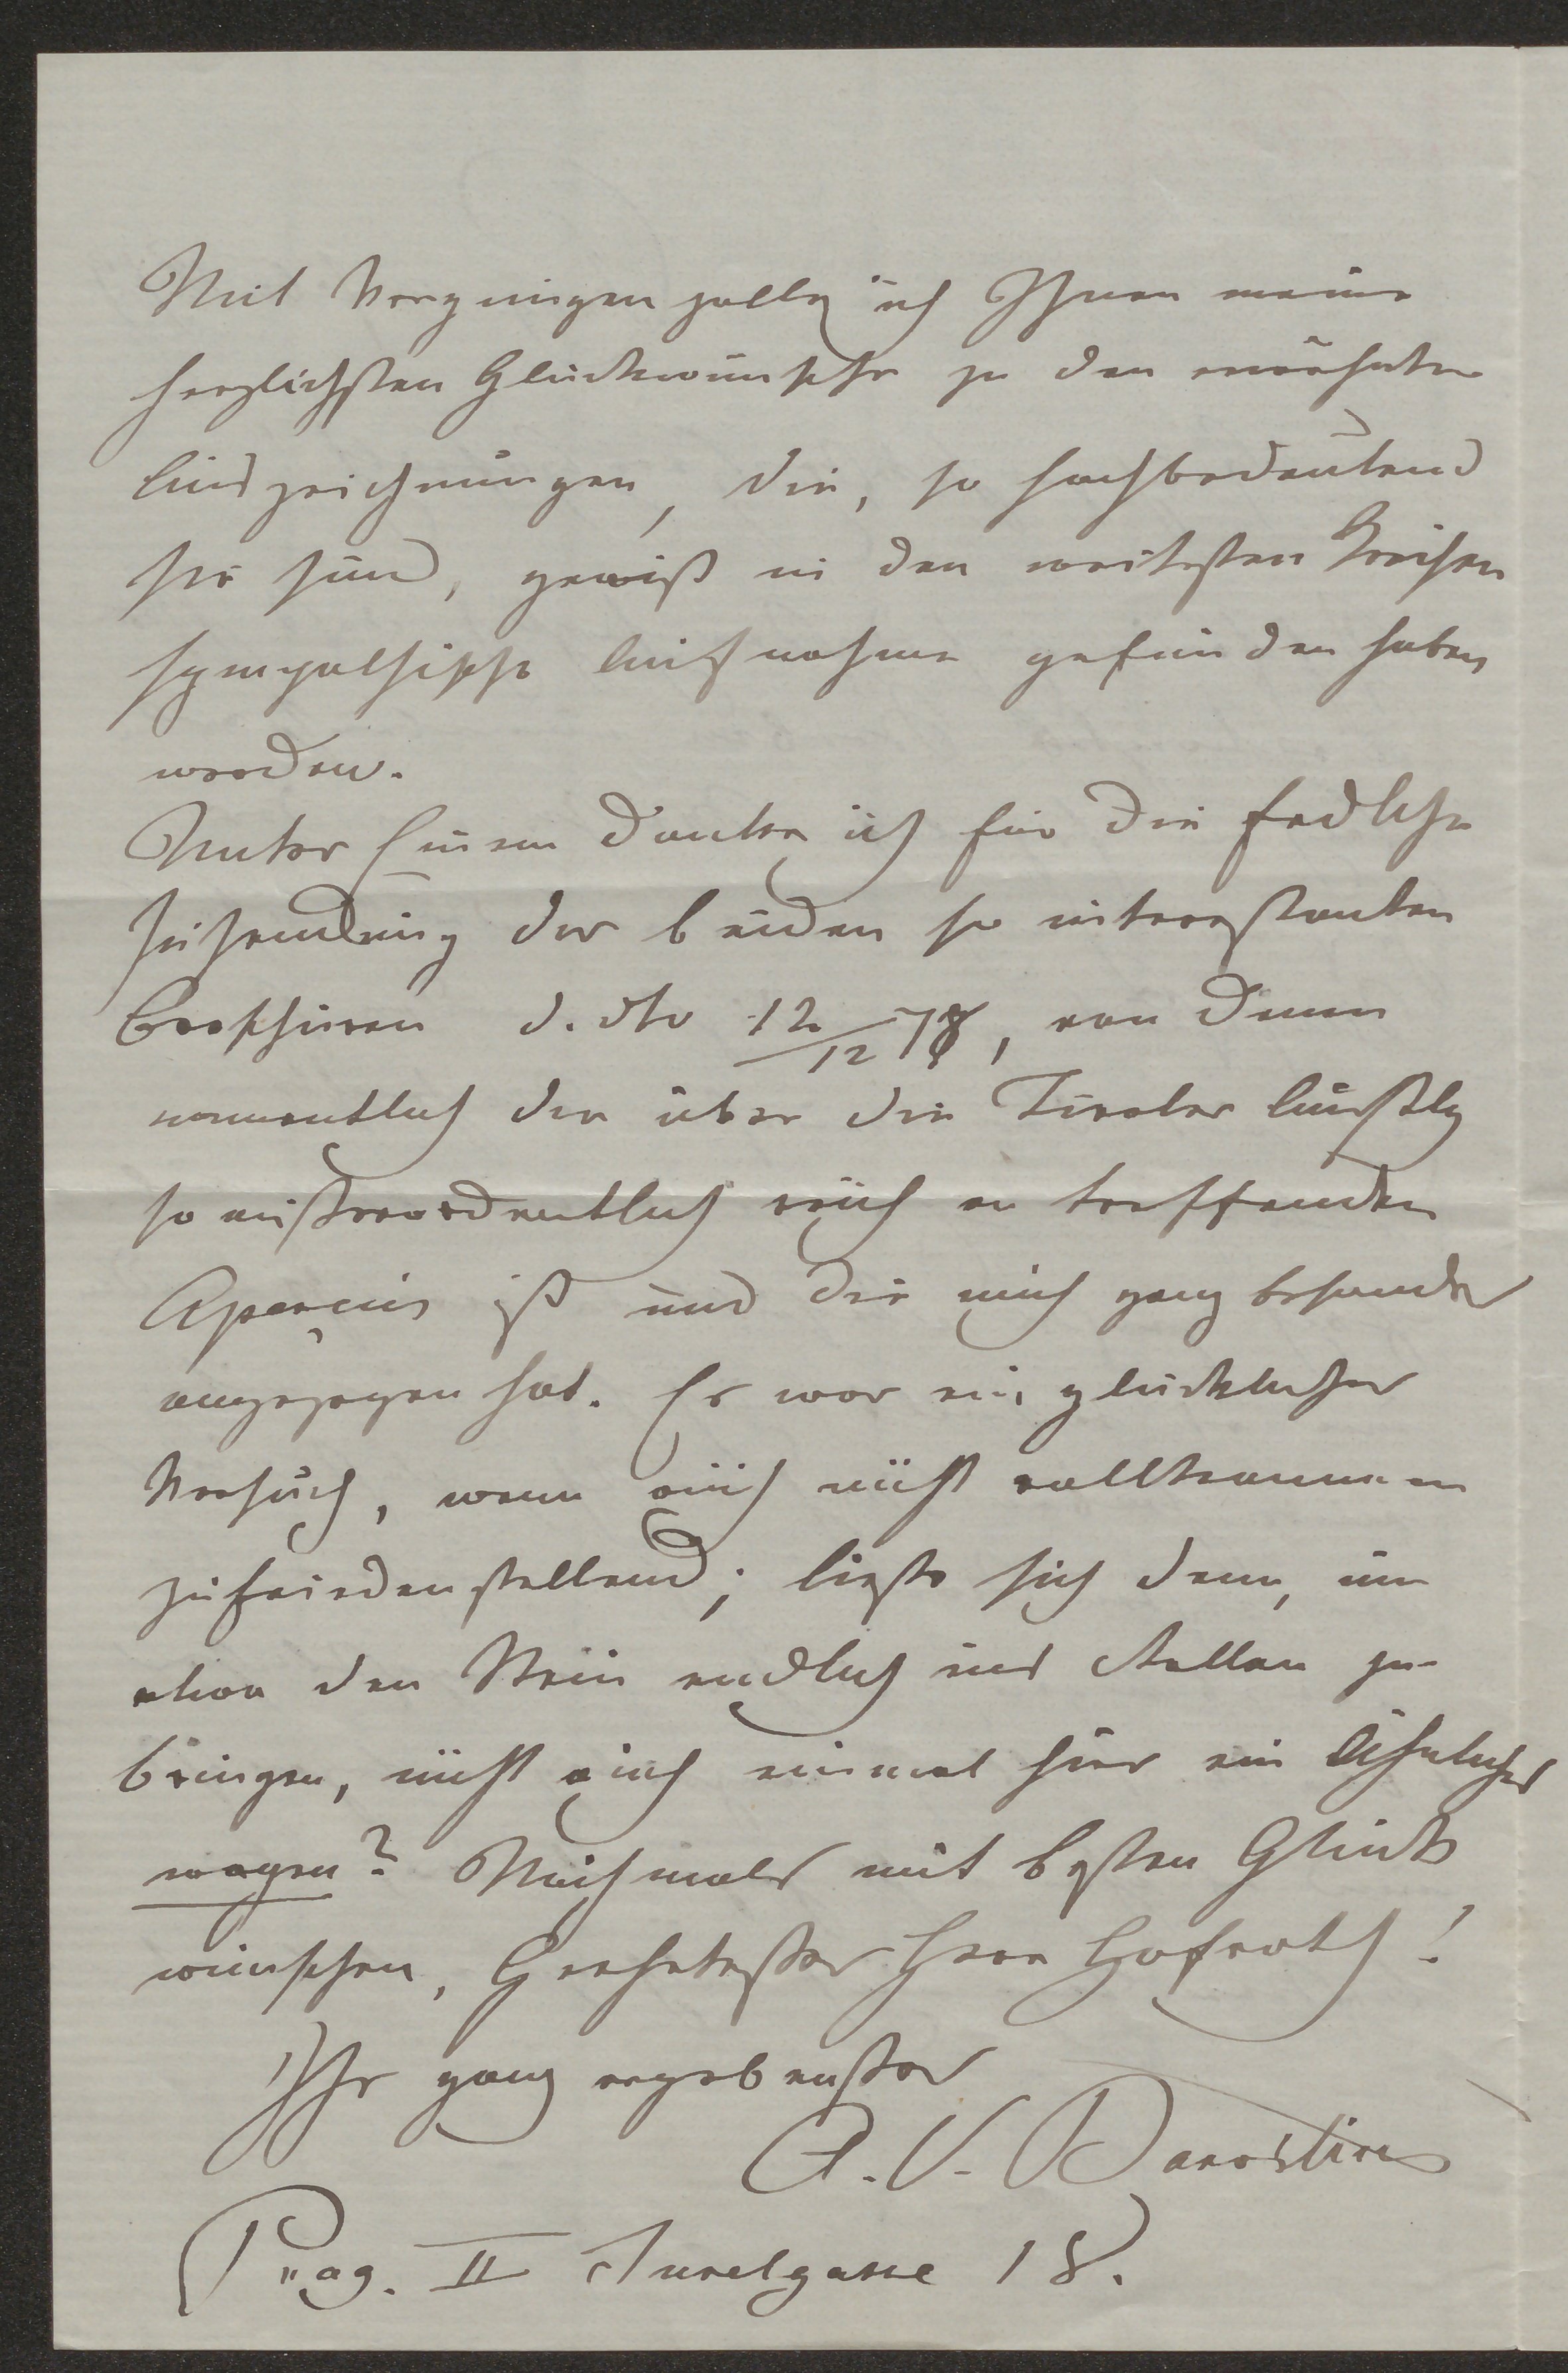 Mit Vergnügen zolle ich Ihnen meine
herzlichsten Glückwünsche zu den erwähnten
Auszeichnungen, die, so hochbedeutend
sie sind, gewiß in den weitesten Kreisen
sympathische Aufnahme gefunden haben
werden.
Unter Einem danke ich für die
Zusendung der beiden so interessanten
Broschüren d. dto 12/12 78, von denen
namentlich die über die Tiroler
so außerordentlich reich an treffenden
Aperçuis ist und die mich ganz besonders
angezogen hat. Es war ein glücklicher
Versuch, wenn auch nicht vollkommen
zufriedenstellend; ließe sich denn, um
etwa den Stein endlich ins Rollen zu
bringen, nicht auch einmal hier ein Ähnliches
wagen? Nochmals mit besten Glück
wünschen, Geehrtester Herr Hofrath!
Ihr ganz ergebenster
A. V.
Prag. II Inselgasse 18.